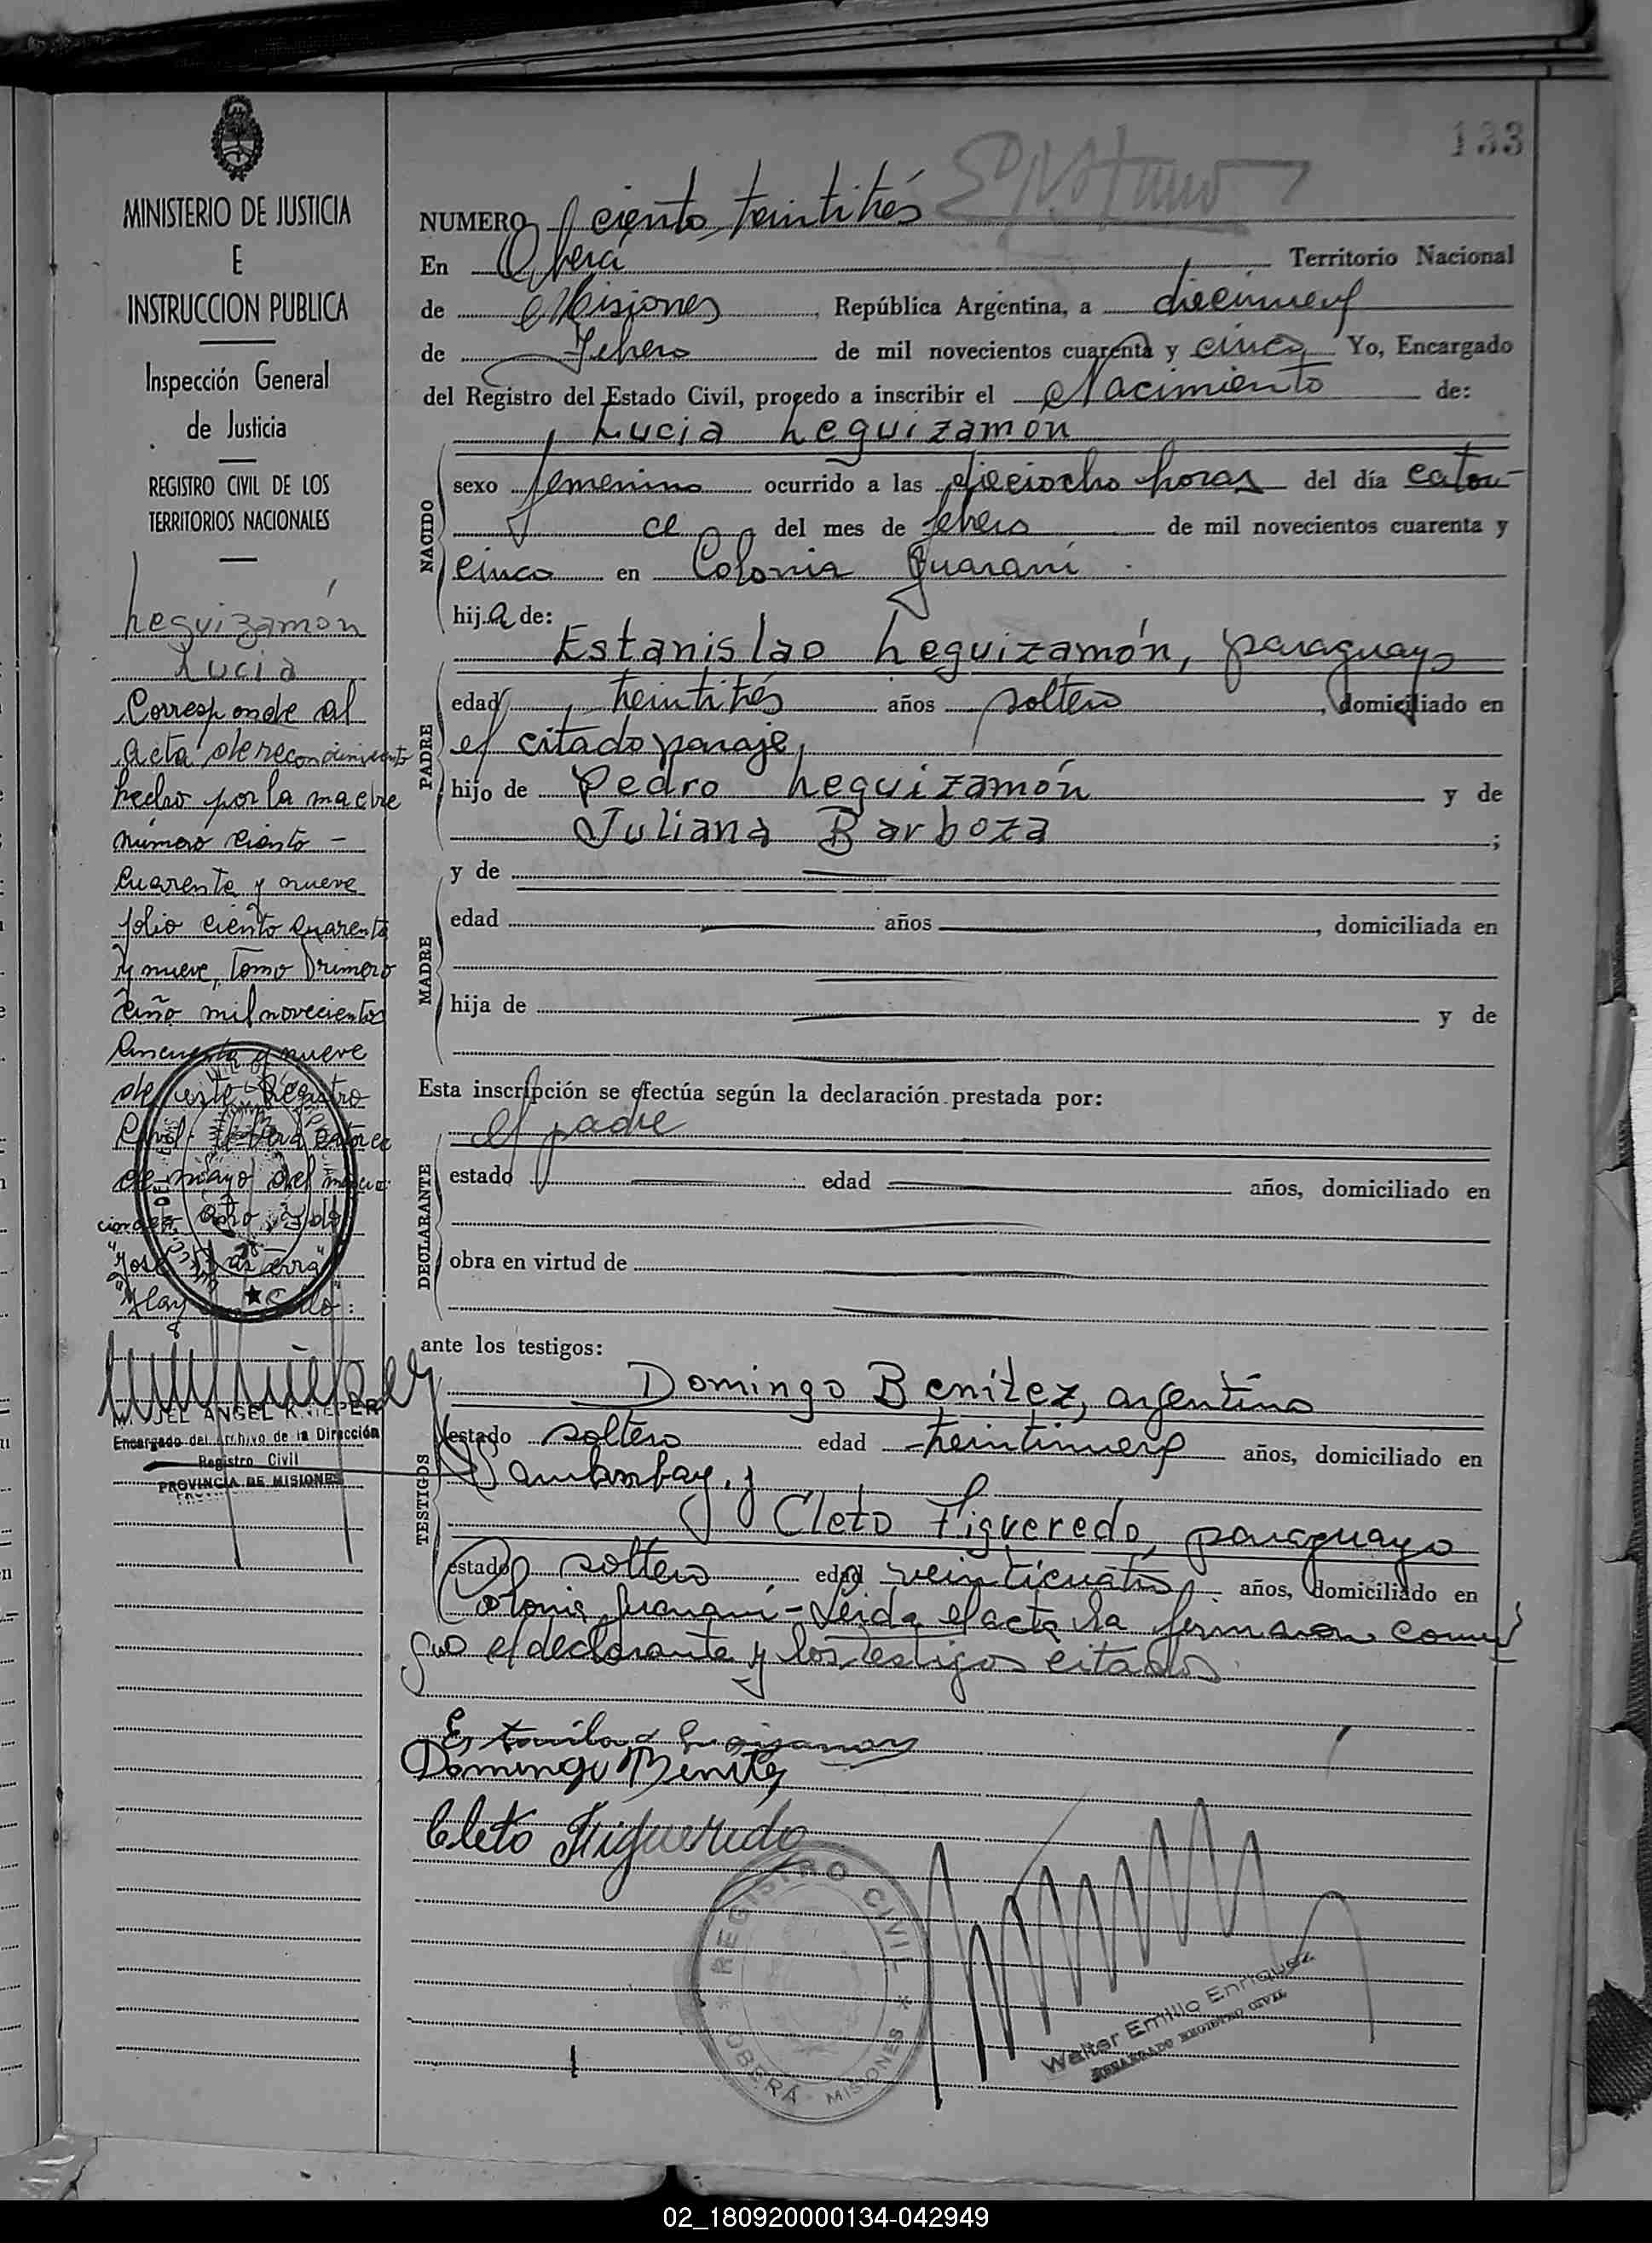 133
MINISTERIO DE JUSTICIA
E
INSTRUCCION PUBLICA
Inspección General
de Justicia
REGISTRO CIVIL DE LOS
TERRITORIOS NACIONALES
Leguizamón
Lucia
Corresponde al
acta de reconocimiento
hecho por la madre
número ciento -
cuarenta y nueve
folio ciento cuarenta
y nueve, Tomo Primero
año mil novecientos
cincuenta y nueve
de este Registro
Civil. Oberá catorce
de mayo del mencio
cionado año.
Hay un Sello:
MIGUEL ANGEL KNIEPER
Encargado del Archivo de la Dirección
Registro Civil
PROVINCIA DE MISIONES
NUMERO ciento treintitrés
En Oberá Territorio Nacional
de Misiones, República Argentina, a diecinueve
de Febrero de mil novecientos cuarenta y cinco Yo, Encargado
del Registro del Estado Civil, procedo a inscribir el Nacimiento de:
Lucia Leguizamón
NACIDO
sexo femenino ocurrido a las dieciocho horas del día cator-
ce del mes de febrero de mil novecientos cuarenta y
cinco en Colonia Guaraní
hija de:
PADRE
Estanislao Leguizamón, paraguayo
edad treintitrés años soltero, domiciliado en
el citado paraje,
hijo de Pedro Leguizamón y de
Juliana Barboza ;
MADRE
y de
edad años , domiciliada en
hija de y de
Esta inscripción se efectúa según la declaración prestada por:
DECLARANTE
el padre
estado edad años, domiciliado en
obra en virtud de
ante los testigos:
TESTIGOS
Domingo Benítez, argentino
estado soltero edad treintinueve años, domiciliado en
y
Cleto Figueredo, paraguayo
estado soltero edad veinticuatro años, domiciliado en
Colonia Guaraní - Leida el acta la firmaron conmi
go el declarante y los testigos citados
Domingo Benitez
Cleto Figueredo
REGISTRO CIVIL
OBERÁ - MISIONES
Walter Emilio Enriquez
ENCARGADO REGISTRO CIVIL
02_180920000134-042949